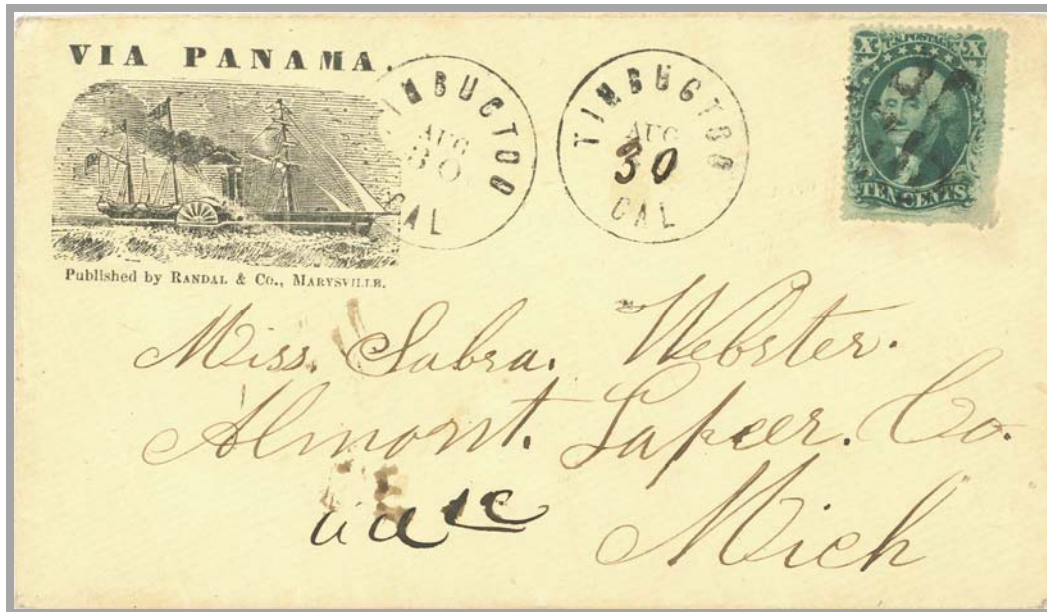 VIA PANAMA.
Published by RANDAL & Co., MARYSVILLE.
TIMBUCTOO
AUG
30
CAL
TIMBUCTOO
AUG
30
CAL
X U.S. POSTAGE X
TEN CENTS
Miss. Sabra. Webster.
Almont. Lapeer. Co.
Mich